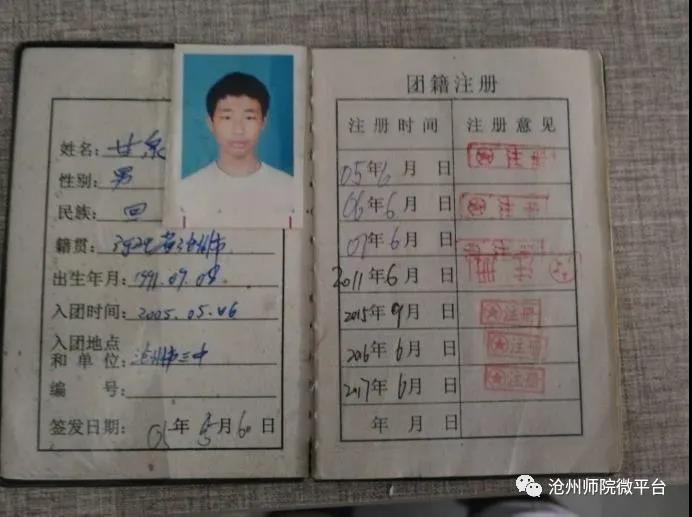 姓名：甘泉
性别：男
民族：回
籍贯：河北省沧州市
出生年月：1991.09.08
入团时间：2005.05.06
入团地点
和单位：沧州市三中
编号：
签发日期：05年5月60日
团籍注册
注册时间 注册意见
05年6月 日 注册
06年6月 日 注册
07年6月 日 注册
2011年6月 日
2015年9月 日 注册
2016年6月 日 注册
2017年6月 日 注册
年 月 日
沧州师院微平台